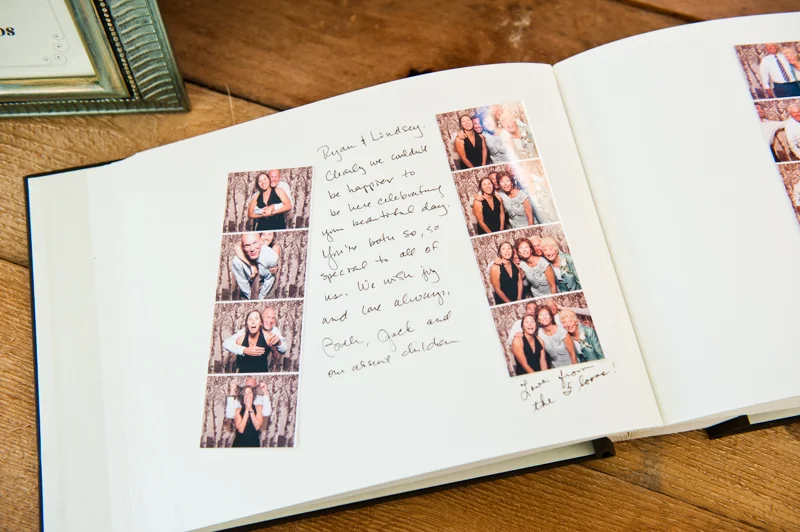 os
Ryan & Lindsey.
Clearly we couldn't
be happier to
be here celebrating
your beautiful day.
You're both so, so
special to all of
us. We wish joy
and love always,
Jack and
our absent children
Love from
the 5